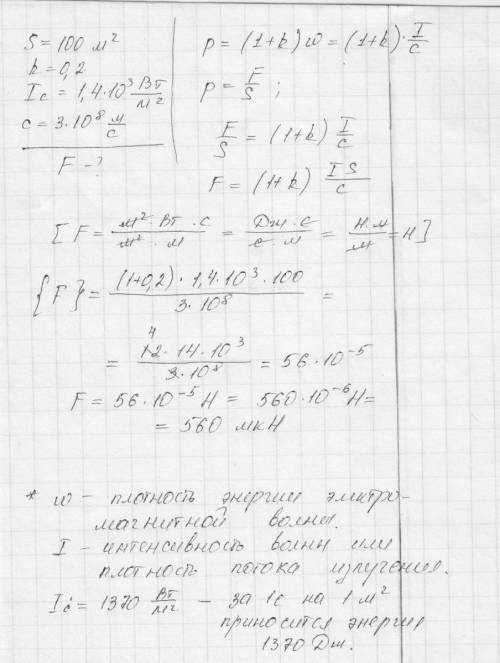 S = 100 м²
k = 0,2
Ic = 1,4·10³ Вт/м²
c = 3·10⁸ м/с
F - ?
p = (1+k) w = (1+k)· I/c
p = F/S ;
F/S = (1+k) I/c
F = (1+k) IS/c
[F = м²·Вт·с/м²·м = Дж·с/с·м = Н·м/м = Н]
{F} = (1+0,2)·1,4·10³·100/3·10⁸ =
4
= 12·14·10³/3·10⁸ = 56·10⁻⁵
F = 56·10⁻⁵ Н = 560·10⁻⁶ Н =
= 560 мкН
* w – плотность энергии электро-
магнитной волны.
I – интенсивность волны или
плотность потока излучения.
Ic = 1370 Вт/м² – за 1с на 1 м²
приносится энергия
1370 Дж.